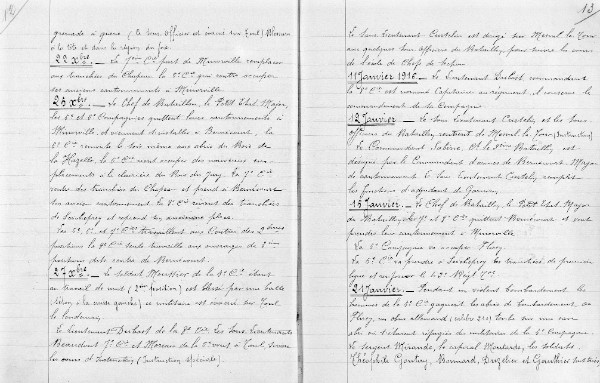 12
grenade à queue, (le sous officier est évacué sur Toul). Mission
à le 20 et dans la région du
22 Xbre. — La 7ème Cie part de Minorville remplacer
aux tranchées du Chapeau la 5e Cie qui rentre occuper
ses anciens cantonnements à Minorville.
26 Xbre. — Le Chef de Bataillon, le Petit Etat Major,
les 5e et 6e Compagnies quittent leurs cantonnements à
Minorville et viennent s'installer à Bernécourt, la
6e Cie remonte le soir même aux abris du Bois de
la Hazelle, la 5e Cie vient occuper des nouveaux em-
placements à la clairière du Bois du Jury. La 7e Cie
rentre des tranchées du Chapeau et prend à Bernécourt
son ancien cantonnement, la 8e Cie vient des tranchées
de et reprend son ancienne place.
Les 5e, 6e et 7e Cies travaillent aux Centres des 2èmes
positions, la 8e Cie seule travaille aux ouvrages de 2ème
position du centre de Bernécourt.
27 Xbre. — Le soldat de la 5e Cie étant
au travail de nuit (2ème position) est blessé par une balle
à la cuisse gauche) ce militaire est évacué sur Toul
le lendemain.
Le Lieutenant Dubost de la 8e Cie, les Sous-Lieutenants
Beaudout 7e Cie et Moreau de la 5e vont à Toul, suivre
les cours d'Instruction (Instruction Spéciale).
13
Le Sous Lieutenant est dirigé sur Mesnil la Tour
avec quelques sous officiers du Bataillon, pour suivre les cours
de l'école de Chefs de Section
11 Janvier 1916. — Le Lieutenant Dubost, commandant
la 8e Cie est nommé Capitaine au régiment, il conserve le
commandement de sa Compagnie.
12 Janvier — Le Sous Lieutenant et les sous
officiers du Bataillon rentrent de Mesnil la Tour (Instruction)
Le Commandant Ct le 2ème Bataillon, est
désigné par le Commandant d'armes de Bernécourt, Major
de cantonnement, le Sous Lieutenant remplit
les fonctions d'adjudant de Garnison.
15 Janvier. — Le Chef de Bataillon, le Petit Etat Major
du Bataillon, les 7e et 8e Cie quittent Bernécourt et vont
prendre leur cantonnement à Minorville
La 5e Compagnie va occuper Flirey.
La 6e Cie va prendre à les tranchées de première
ligne et
21 Janvier. — Pendant un violent bombardement les
hommes de la 5e Cie gagnent les abris de bombardement, de
Flirey, un obus allemand (calibre 210) tombe sur une cave
abri où s'étaient réfugiés dix militaires de la 5e Compagnie.
Le Sergent Mirande, le caporal les soldats
Théophile Bonnard, et Gauthier sont tués,